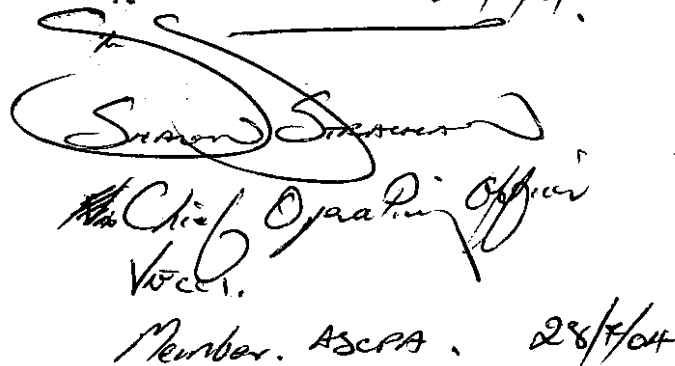 Sharon Strachan
Chief Operating Officer
VECCI.
Member. ASCPA. 28/7/04